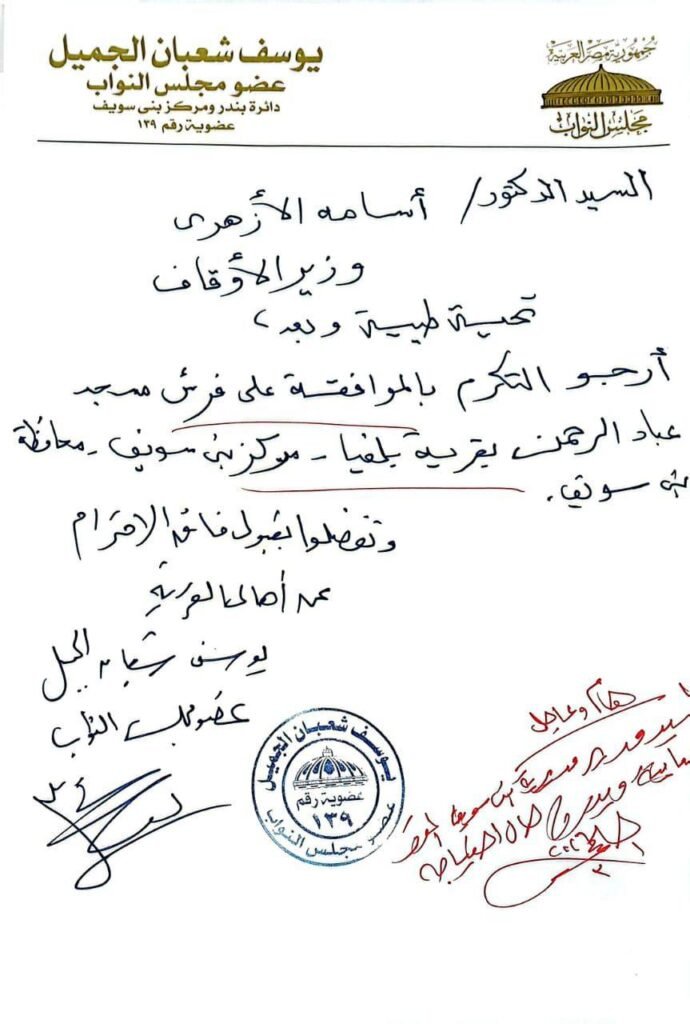 جمهورية مصر العربية
مجلس النواب
يوسف شعبان الجميل
عضو مجلس النواب
دائرة بندر ومركز بنى سويف
عضوية رقم ١٣٩
السيد الدكتور/ أسامه الأزهرى
وزير الأوقاف
تحية طيبة وبعد،
أرجو التكرم بالموافقة على فرش مسجد
عباد الرحمن بقرية بلفيا - مركز بنى سويف - محافظة
بنى سويف.
وتفضلوا بقبول فائق الاحترام
عن أهالى القرية
يوسف شعبان الجميل
عضو مجلس النواب
يوسف شعبان الجميل
عضوية رقم
١٣٩
عضو مجلس النواب
هام وعاجل
السيد مدير مديرية بنى سويف